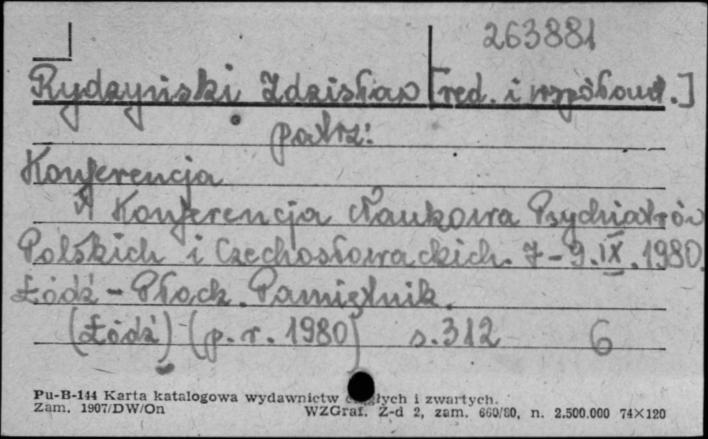 263881
Rydzyński Zdzisław [red. i współaut.]
patrz:
Konferencja
Konferencja Naukowa Psychiatrów
Polskich i Czechosłowackich. 7-9.IX.1980.
Łódź - Płock. Pamiętnik.
(Łódź) (p. r. 1980) s. 312 6
Pu-B-144 Karta katalogowa wydawnictw ciągłych i zwartych.
Zam. 1907/DW/On WZGraf. Z-d 2, zam. 660/80, n. 2.500.000 74×120